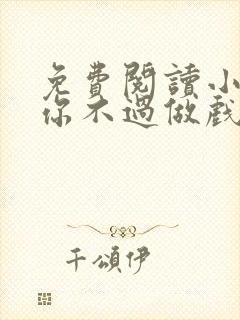 免費閱讀小
你不過做戲
千頌伊